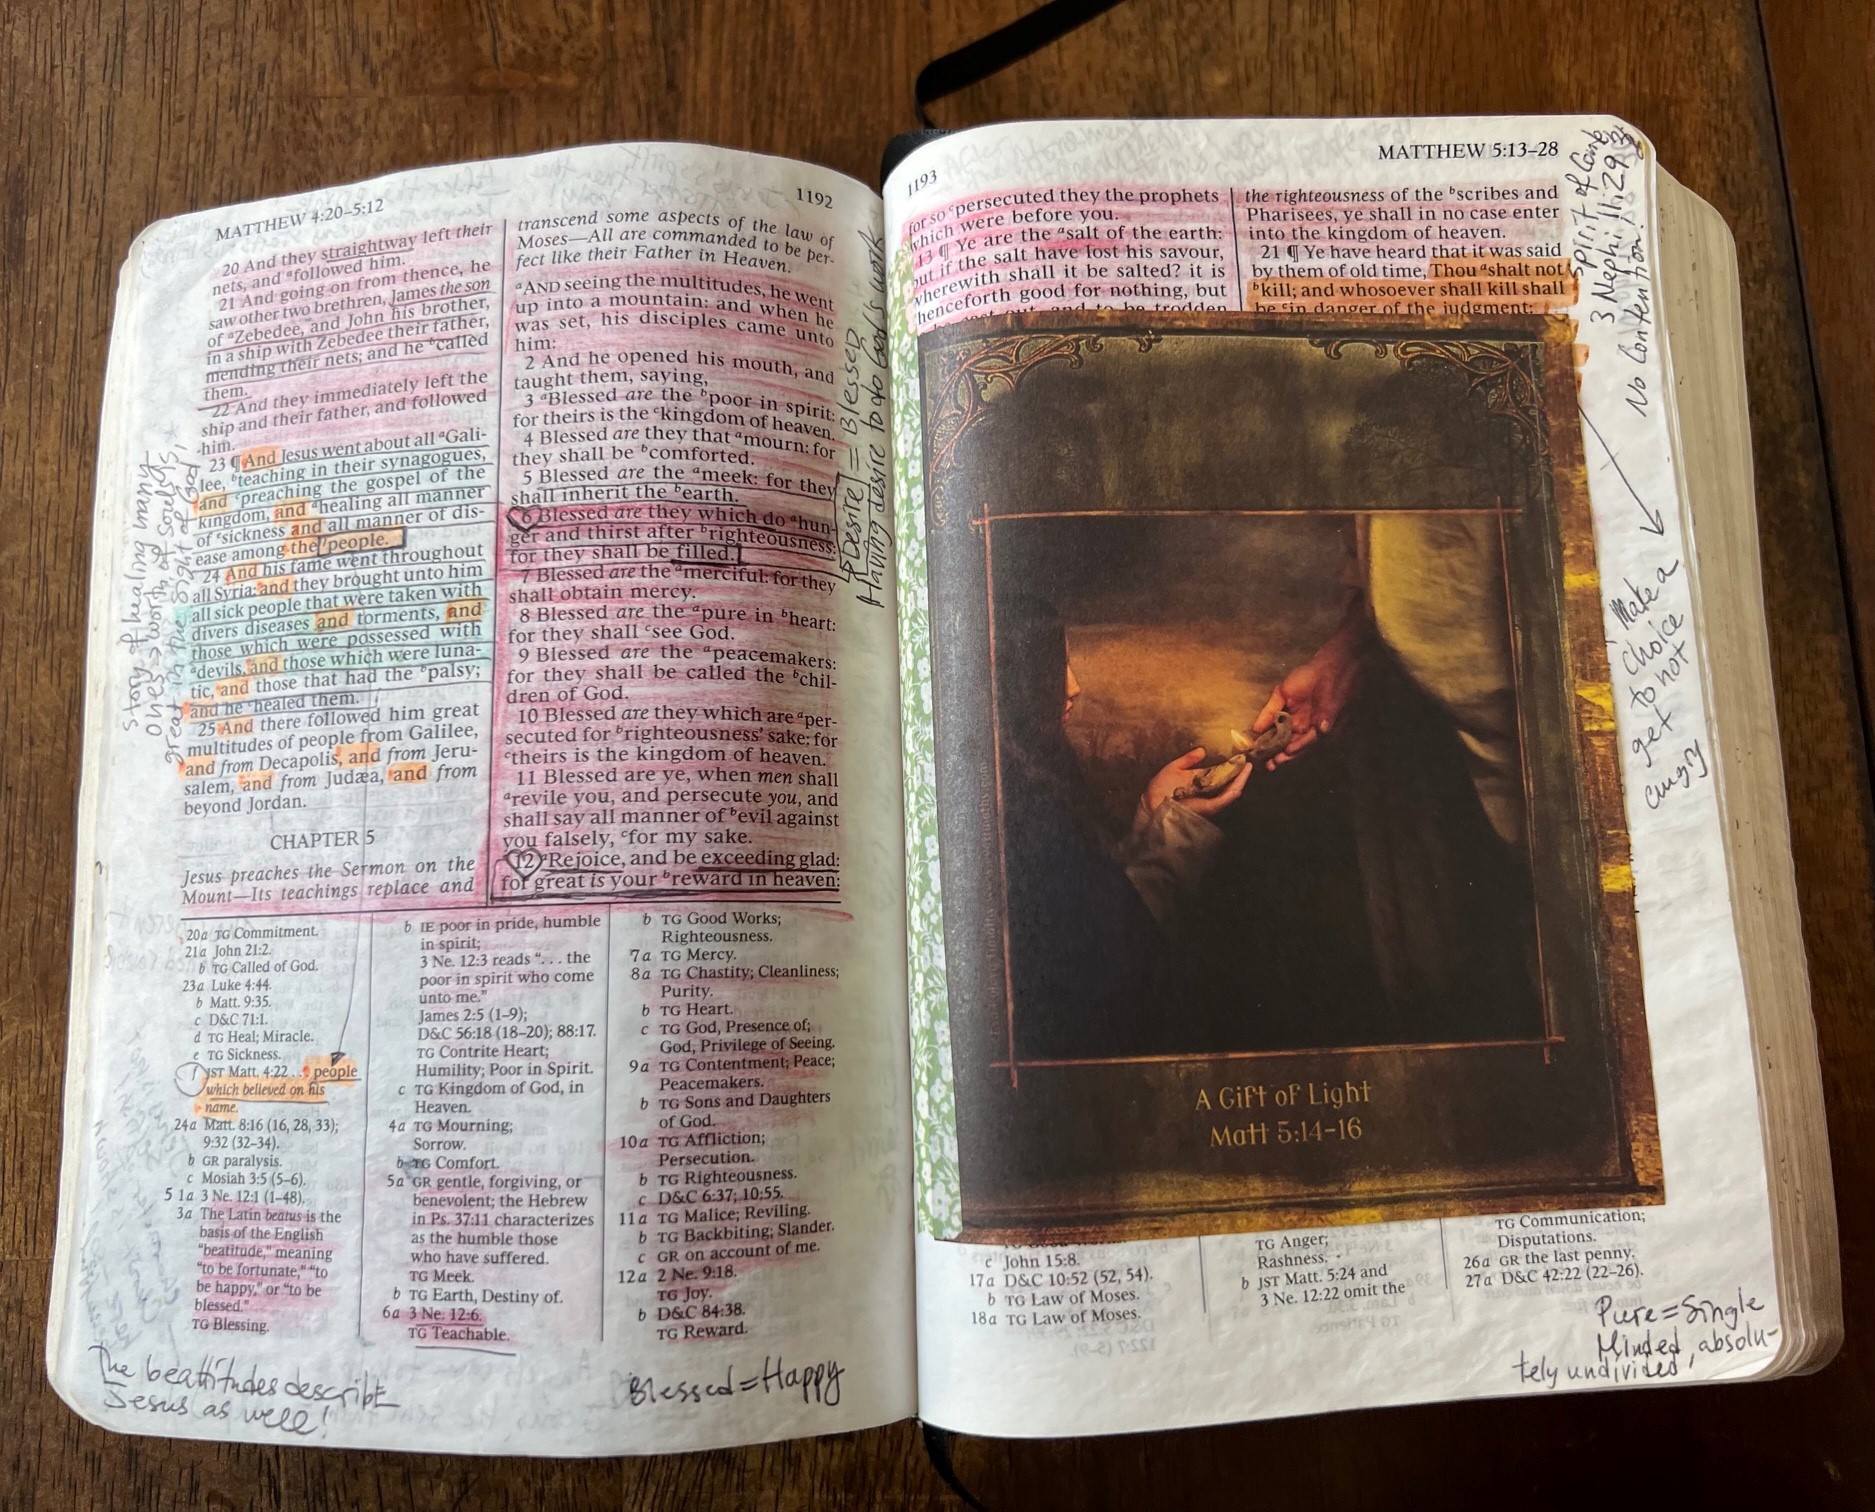 MATTHEW 4:20–5:12
1192
20 And they straightway left their
nets, and ᵃfollowed him.
21 And going on from thence, he
saw other two brethren, James the son
of ᵃZebedee, and John his brother,
in a ship with Zebedee their father,
mending their nets; and he ᵇcalled
them.
22 And they immediately left the
ship and their father, and followed
him.
23 ¶ And Jesus went about all ᵃGali-
lee, ᵇteaching in their synagogues,
and ᶜpreaching the gospel of the
kingdom, and ᵈhealing all manner
of ᵉsickness and all manner of dis-
ease among the ᶠpeople.
24 And his fame went throughout
all Syria: and they brought unto him
all sick people that were taken with
divers diseases and torments, and
those which were possessed with
ᵃdevils, and those which were luna-
tic, and those that had the ᵇpalsy;
and he ᶜhealed them.
25 And there followed him great
multitudes of people from Galilee,
and from Decapolis, and from Jeru-
salem, and from Judæa, and from
beyond Jordan.
CHAPTER 5
Jesus preaches the Sermon on the
Mount—Its teachings replace and
transcend some aspects of the law of
Moses—All are commanded to be per-
fect like their Father in Heaven.
ᵃAND seeing the multitudes, he went
up into a mountain: and when he
was set, his disciples came unto
him:
2 And he opened his mouth, and
taught them, saying,
3 ᵃBlessed are the ᵇpoor in spirit:
for theirs is the ᶜkingdom of heaven.
4 Blessed are they that ᵃmourn: for
they shall be ᵇcomforted.
5 Blessed are the ᵃmeek: for they
shall inherit the ᵇearth.
6 Blessed are they which do ᵃhun-
ger and thirst after ᵇrighteousness:
for they shall be filled.
7 Blessed are the ᵃmerciful: for they
shall obtain mercy.
8 Blessed are the ᵃpure in ᵇheart:
for they shall ᶜsee God.
9 Blessed are the ᵃpeacemakers:
for they shall be called the ᵇchil-
dren of God.
10 Blessed are they which are ᵃper-
secuted for ᵇrighteousness’ sake: for
ᶜtheirs is the kingdom of heaven.
11 Blessed are ye, when men shall
ᵃrevile you, and persecute you, and
shall say all manner of ᵇevil against
you falsely, ᶜfor my sake.
12 ᵃRejoice, and be exceeding glad:
for great is your ᵇreward in heaven:
story of healing many
ones → worth of souls is
great in the sight of God!
Desire = Blessed
Having desire to do God's work
20a TG Commitment.
21a John 21:2.
b TG Called of God.
23a Luke 4:44.
b Matt. 9:35.
c D&C 71:1.
d TG Heal; Miracle.
e TG Sickness.
f JST Matt. 4:22 . . . people
which believed on his
name.
24a Matt. 8:16 (16, 28, 33);
9:32 (32–34).
b GR paralysis.
c Mosiah 3:5 (5–6).
5 1a 3 Ne. 12:1 (1–48).
3a The Latin beatus is the
basis of the English
“beatitude,” meaning
“to be fortunate,” “to
be happy,” or “to be
blessed.”
TG Blessing.
b IE poor in pride, humble
in spirit;
3 Ne. 12:3 reads “. . . the
poor in spirit who come
unto me.”
James 2:5 (1–9);
D&C 56:18 (18–20); 88:17.
TG Contrite Heart;
Humility; Poor in Spirit.
c TG Kingdom of God, in
Heaven.
4a TG Mourning;
Sorrow.
b TG Comfort.
5a GR gentle, forgiving, or
benevolent; the Hebrew
in Ps. 37:11 characterizes
as the humble those
who have suffered.
TG Meek.
b TG Earth, Destiny of.
6a 3 Ne. 12:6.
TG Teachable.
b TG Good Works;
Righteousness.
7a TG Mercy.
8a TG Chastity; Cleanliness;
Purity.
b TG Heart.
c TG God, Presence of;
God, Privilege of Seeing.
9a TG Contentment; Peace;
Peacemakers.
b TG Sons and Daughters
of God.
10a TG Affliction;
Persecution.
b TG Righteousness.
c D&C 6:37; 10:55.
11a TG Malice; Reviling.
b TG Backbiting; Slander.
c GR on account of me.
12a 2 Ne. 9:18.
TG Joy.
b D&C 84:38.
TG Reward.
The beattitudes describe
Jesus as well!
Blessed = Happy
1193
MATTHEW 5:13–28
for so ᶜpersecuted they the prophets
which were before you.
13 ¶ Ye are the ᵃsalt of the earth:
but if the salt have lost his savour,
wherewith shall it be salted? it is
henceforth good for nothing, but
to be trodden
the righteousness of the ᵇscribes and
Pharisees, ye shall in no case enter
into the kingdom of heaven.
21 ¶ Ye have heard that it was said
by them of old time, Thou ᵃshalt not
ᵇkill; and whosoever shall kill shall
be ᶜin danger of the judgment:
3 Nephi 11:29
No Contention!
Make a
choice
to not
get
angry
A Gift of Light
Matt 5:14-16
c John 15:8.
17a D&C 10:52 (52, 54).
b TG Law of Moses.
18a TG Law of Moses.
TG Anger;
Rashness.
b JST Matt. 5:24 and
3 Ne. 12:22 omit the
TG Communication;
Disputations.
26a GR the last penny.
27a D&C 42:22 (22–26).
Pure = Single
Minded, absolu-
tely undivided,